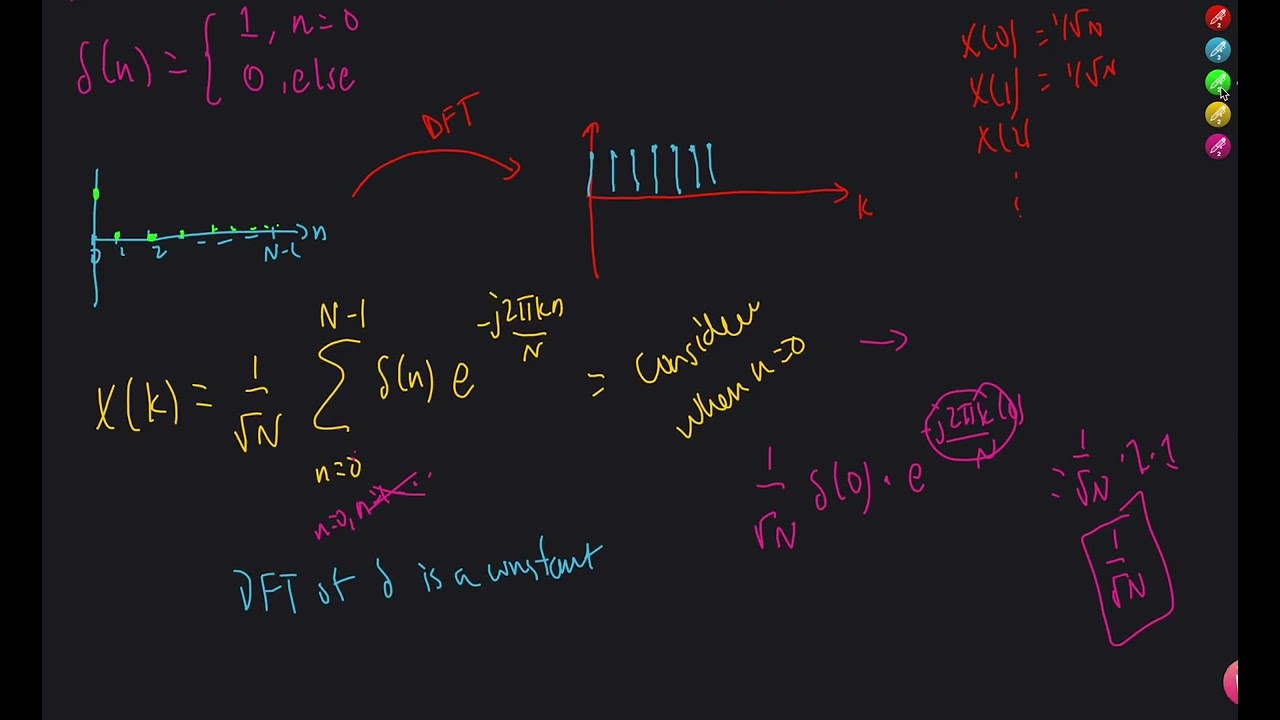 δ(n) = { 1, n=0
0, else
X(0) = 1/√N
X(1) = 1/√N
X(2)
⋮
DFT
k
n
0 1 2 - - - - N-1
X(k) = 1/√N ∑_{n=0}^{N-1} δ(n) e^{-j2πkn/N} = consider when n=0 →
n=0,
1/√N δ(0) · e^{-j2πk(0)/N} = 1/√N · 1 · 1
1/√N
DFT of δ is a constant